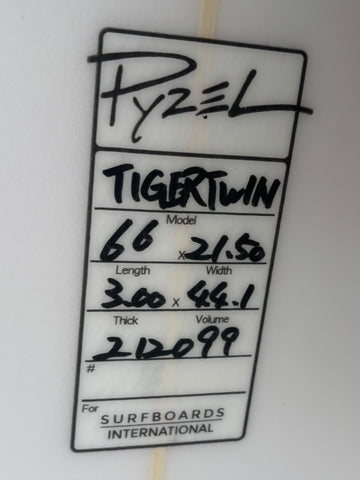 PYZEL
TIGERTWIN
Model
66 x 21.50
Length Width
3.00 x 44.1
Thick Volume
212099
#
For SURFBOARDS
INTERNATIONAL